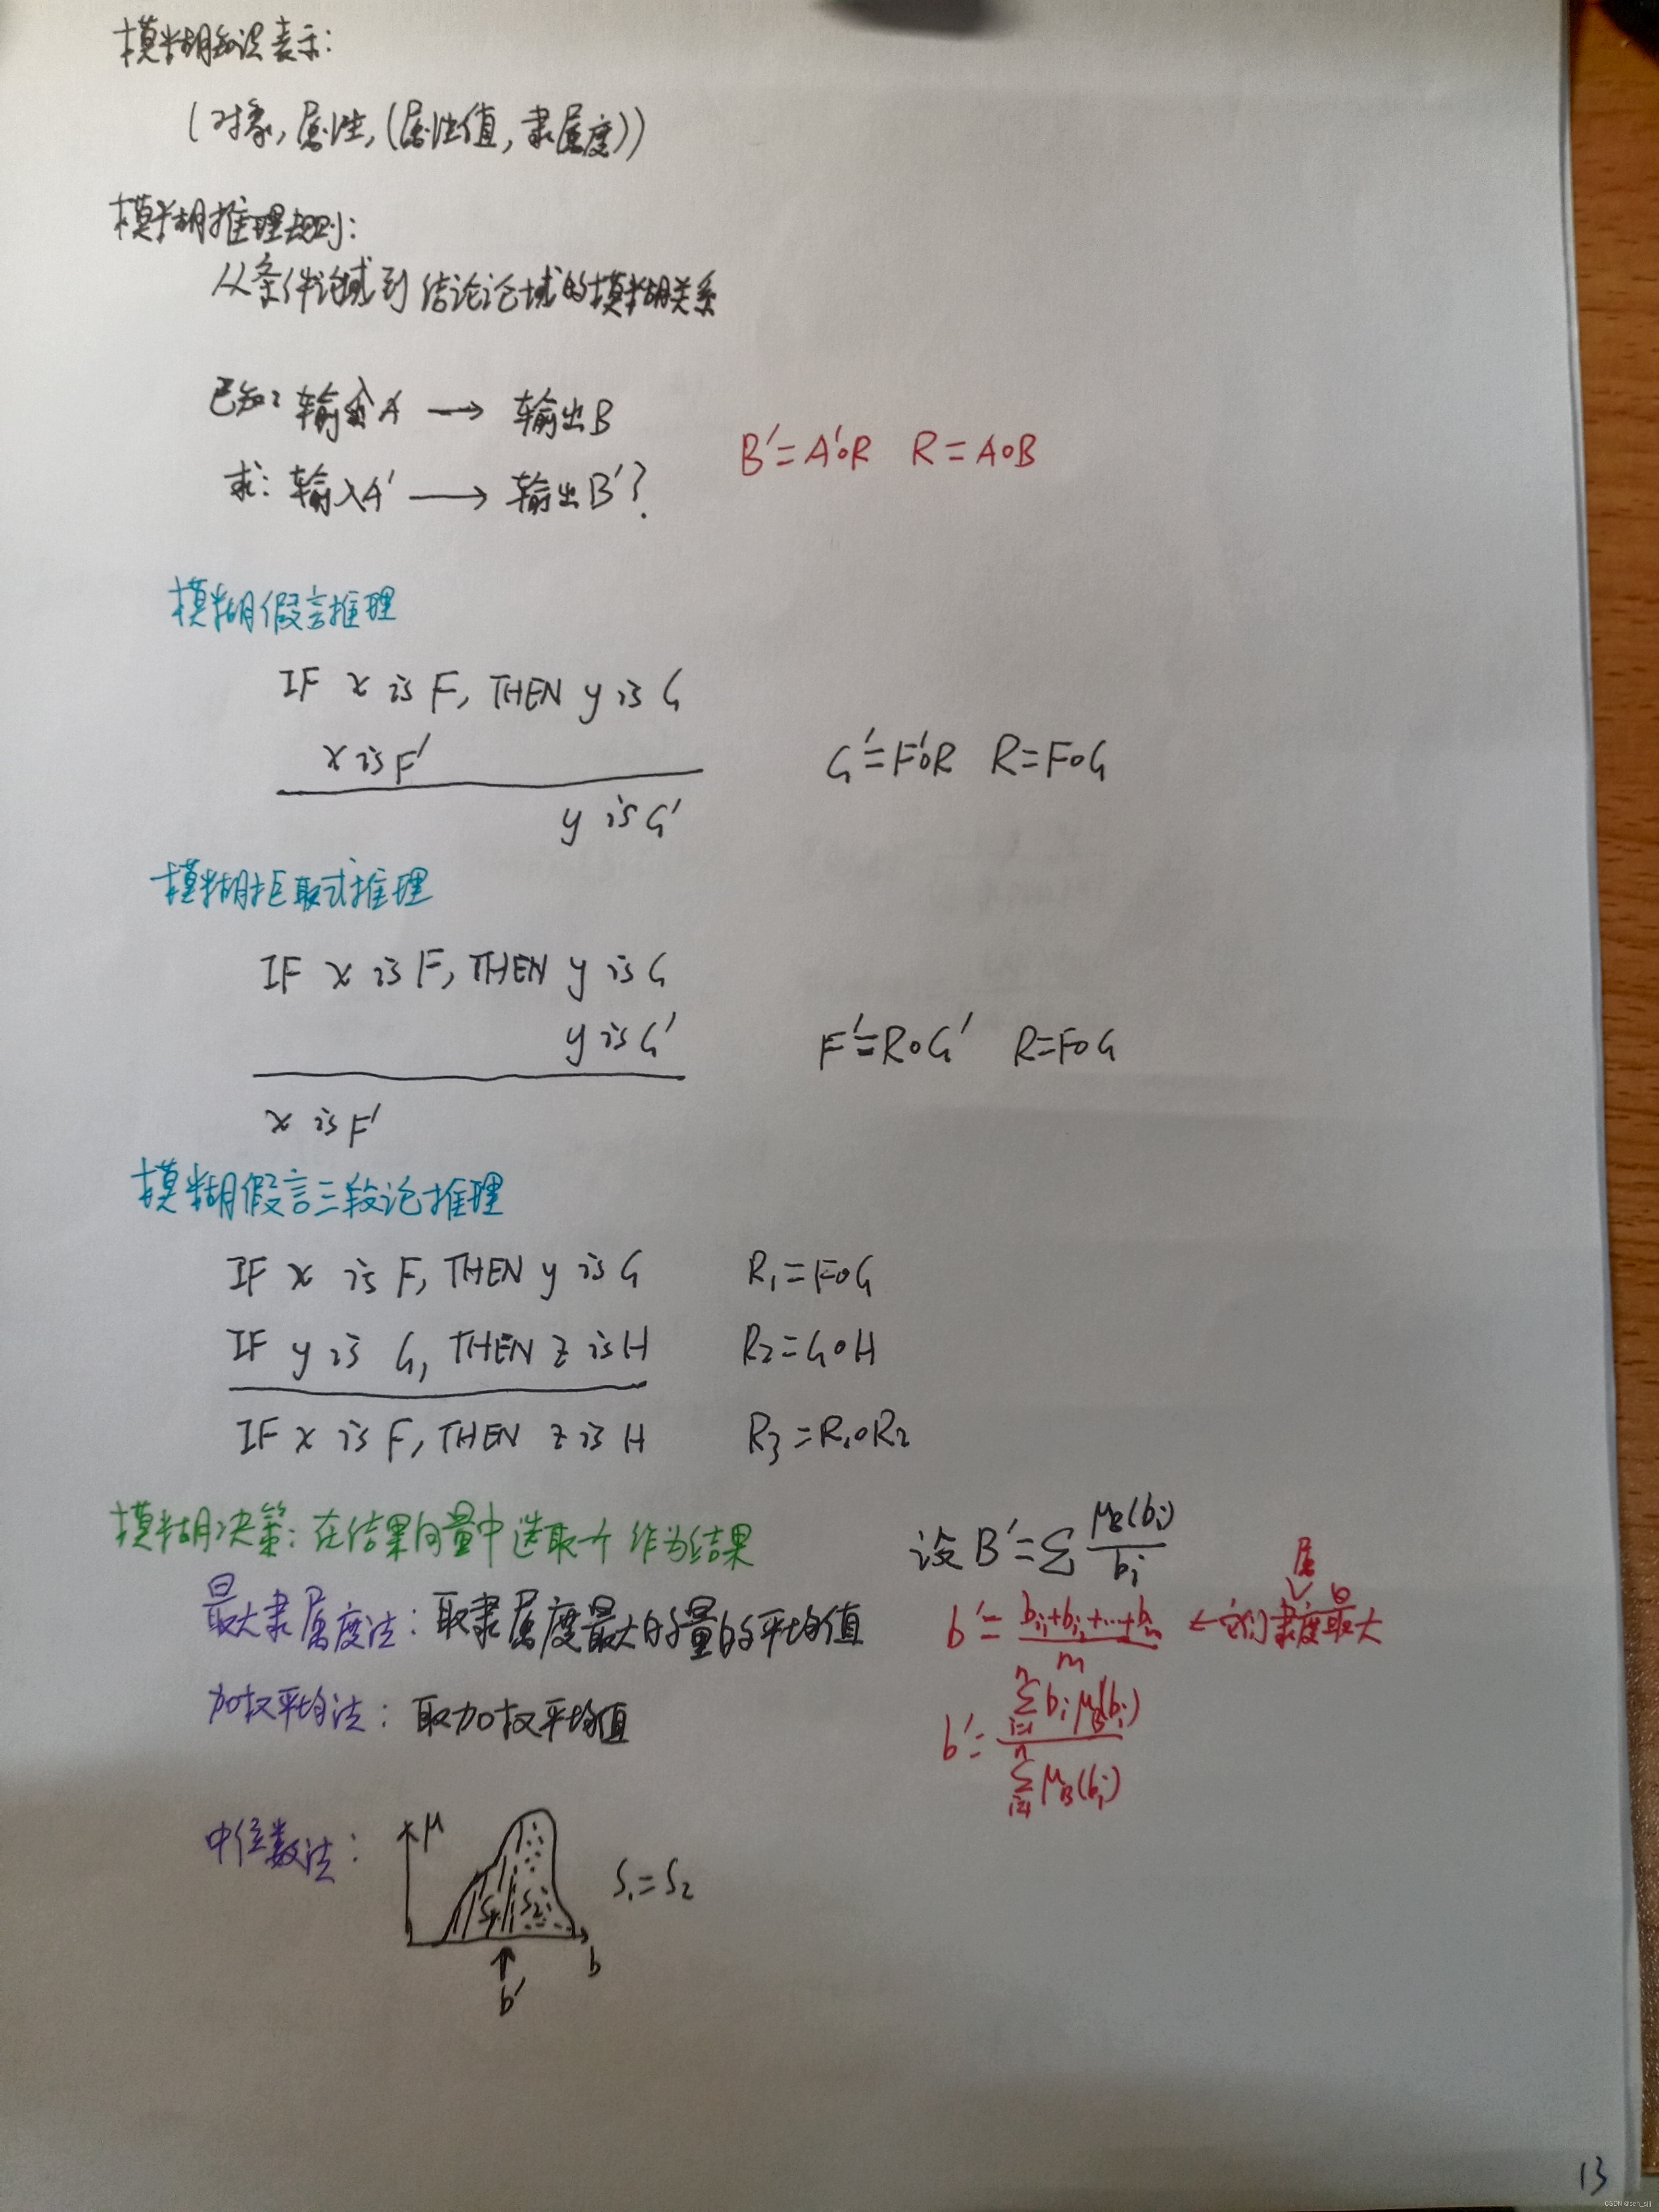 模糊知识表示:
(对象,属性,(属性值,隶属度))
模糊推理规则:
从条件论域到结论论域的模糊关系
已知:输入A → 输出B
B'=A'∘R R=A∘B
求:输入A' → 输出B'?
模糊假言推理
IF x is F, THEN y is G
x is F'
G'=F'∘R R=F∘G
y is G'
模糊拒取式推理
IF x is F, THEN y is G
y is G'
F'=R∘G' R=F∘G
x is F'
模糊假言三段论推理
IF x is F, THEN y is G R₁=F∘G
IF y is G, THEN z is H R₂=G∘H
IF x is F, THEN z is H R₃=R₁∘R₂
模糊决策:在结果向量中选取一个作为结果
设B'=∑ μB(bi)/bi
最大隶属度法:取隶属度最大的量的平均值
b'=(bi₁+bi₂+…+bim)/m ←它们隶属度最大
加权平均法:取加权平均值
b'=∑ⁿᵢ₌₁ bi μB(bi) / ∑ⁿᵢ₌₁ μB(bi)
中位数法:
μ
S₁ S₂
S₁=S₂
b
b'
13
CSDN @sch_sjj